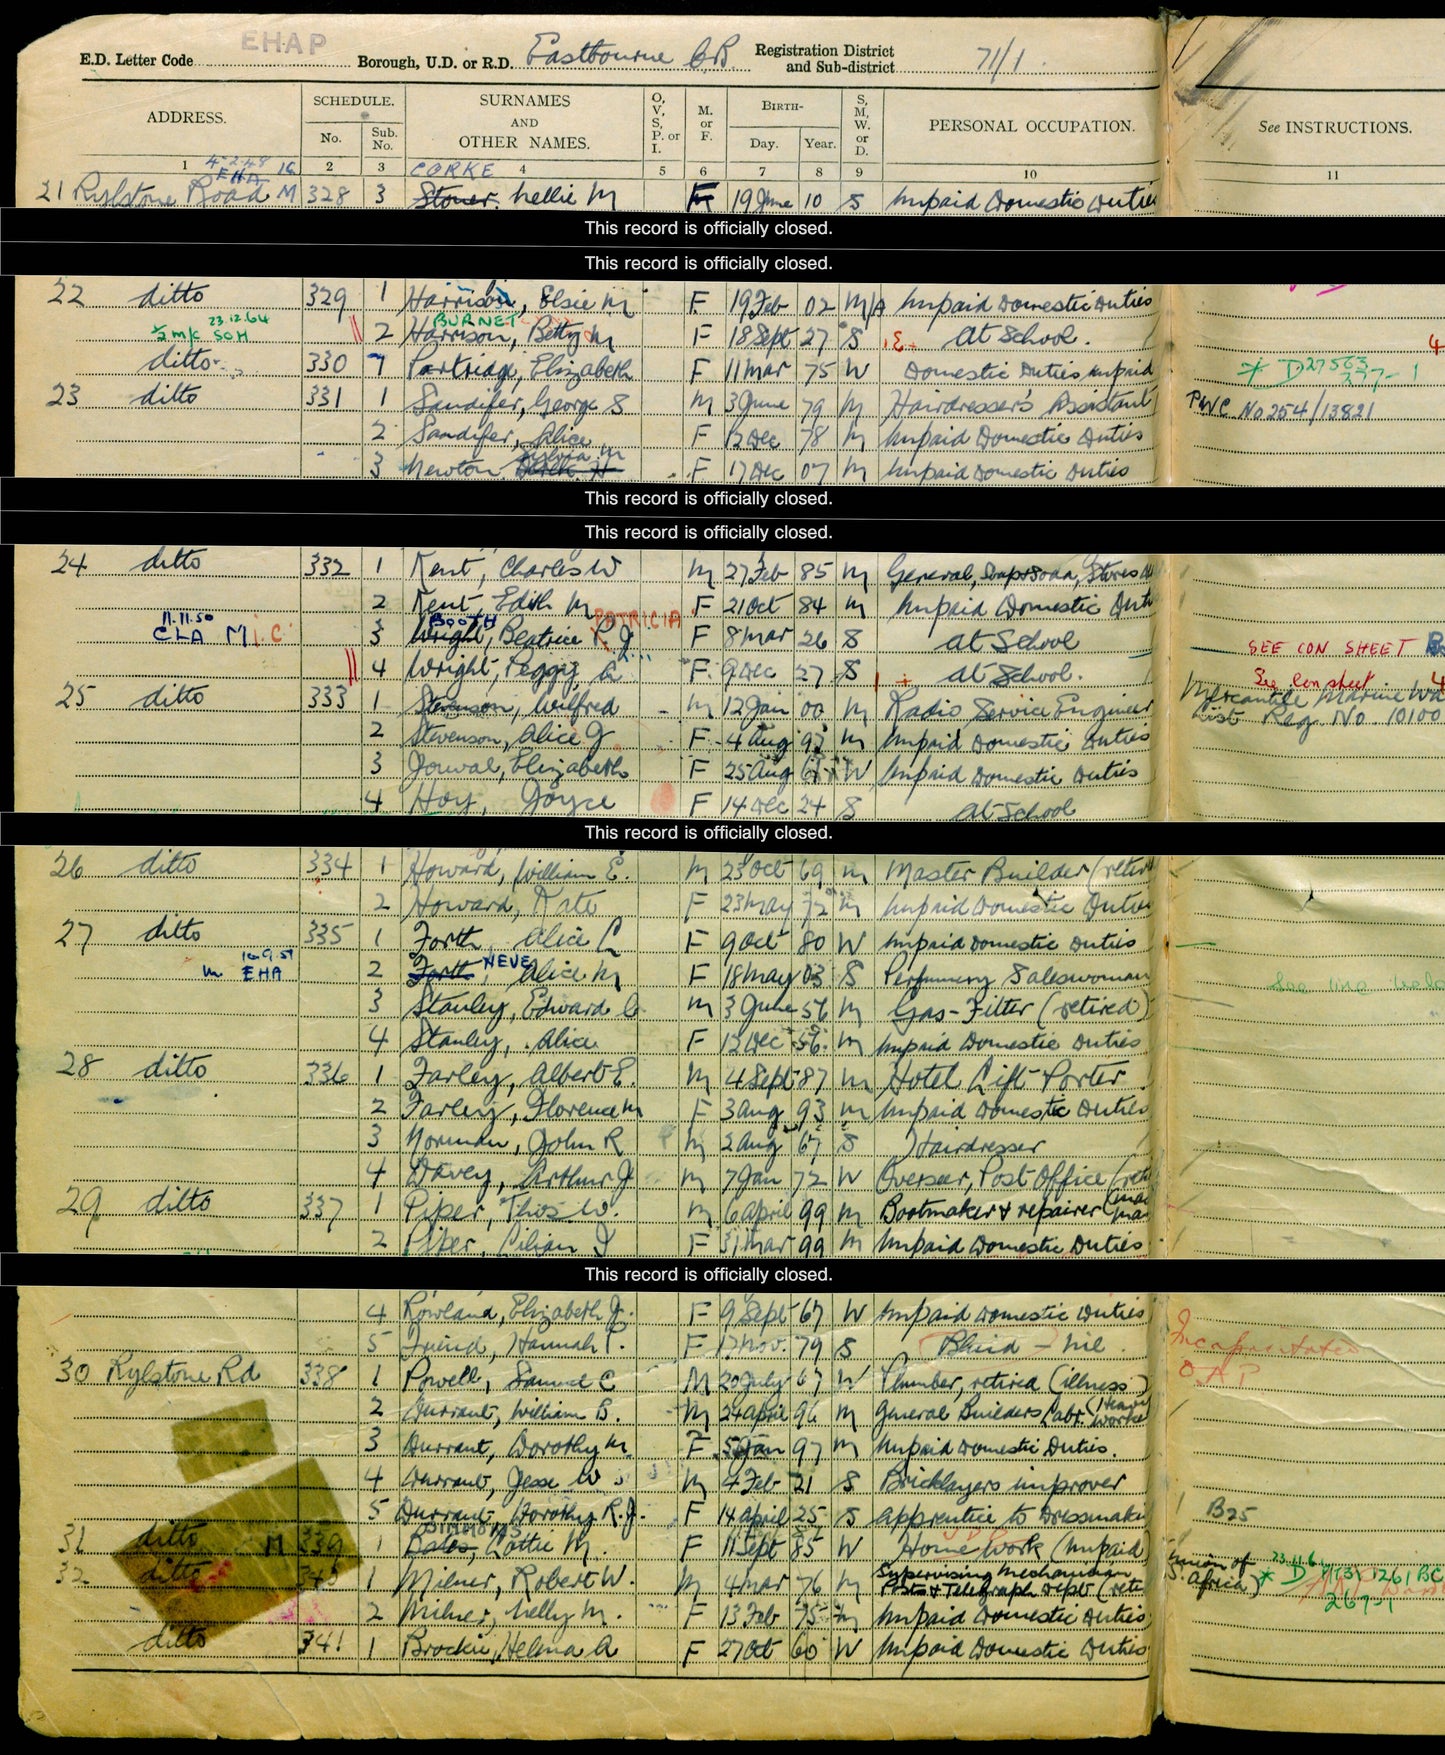 EHAP
E.D. Letter Code Borough, U.D. or R.D. Eastbourne C.B. Registration District and Sub-district 71/1
ADDRESS. SCHEDULE. No. Sub. No. SURNAMES AND OTHER NAMES. O, V, S, P, or I. M. or F. BIRTH- Day. Year. S, M, W, or D. PERSONAL OCCUPATION. See INSTRUCTIONS.
1 2 3 4 5 6 7 8 9 10 11
4-2-48 EHA 16 CORKE
21 Rylstone Road M 328 3 Stoner, Nellie M F 19 June 10 S Unpaid Domestic Duties
This record is officially closed.
This record is officially closed.
22 ditto 329 1 Harrison, Elsie M F 19 Feb 02 M/A Unpaid Domestic Duties
23.12.64 BURNET
½ m/c SOH 2 Harrison, Betty M F 18 Sept 27 S At School. 4
ditto 330 7 Partridge, Elizabeth F 11 Mar 75 W Domestic Duties unpaid * D27563 277-1
23 ditto 331 1 Sandifer, George S M 3 June 79 M Hairdresser's Assistant PWC No 254/13821
2 Sandifer, Alice F 12 Dec 78 M Unpaid Domestic Duties
Sylvia M
3 Newton F 17 Dec 07 M Unpaid Domestic Duties
This record is officially closed.
This record is officially closed.
24 ditto 332 1 Kent, Charles W M 27 Feb 85 M General, Stores
2 Kent, Edith M F 21 Oct 84 M Unpaid Domestic Duti
11.11.50 BOOTH PATRICIA
CLA M 3 Wright, Beatrice P J F 8 Mar 26 S at School SEE CON SHEET
4 Wright, Peggy F 9 Dec 27 S at School. See Con sheet 4
25 ditto 333 1 Stevenson, Wilfred M 12 Jan 00 M Radio Service Engineer Mercantile Marine
List Reg No. 10100
2 Stevenson, Alice J F 4 Aug 93 M Unpaid Domestic Duties
3 Elizabeth F 25 Aug W Unpaid Domestic Duties
4 Hoy, Joyce F 14 Dec 24 S At School
This record is officially closed.
26 ditto 334 1 Howard, William E. M 23 Oct 69 M Master Builder (retir
2 Howard, Kate F 23 May 72 M Unpaid Domestic Duties
27 ditto 335 1 Forth, Alice L F 9 Oct 80 W Unpaid Domestic Duties
NEVE
m EHA 2 Forth, Alice M F 18 May 03 S Perfumery Saleswoman See line
3 Stanley, Edward C M 3 June 56 M Gas-Fitter (retired)
4 Stanley, Alice F 12 Dec 56 M Unpaid Domestic Duties
28 ditto 336 1 Farley, Albert E. M 4 Sept 87 M Hotel Lift Porter
2 Farley, Florence M F 3 Aug 93 M Unpaid Domestic Duties
3 Norman, John R M 2 Aug 67 S Hairdresser
4 Davey, Arthur J M 7 Jan 72 W Overseer, Post Office (reti
29 ditto 337 1 Piper, Thos W. M 6 April 99 M Bootmaker & repairer
2 Piper, Lilian J F 31 Mar 99 M Unpaid Domestic Duties
This record is officially closed.
4 Rowland, Elizabeth J. F 9 Sept 67 W Unpaid Domestic Duties
5 Friend, Hannah F 17 Nov. 79 S Blind - nil. Incapacitated
30 Rylstone Rd 338 1 Powell, Samuel C M 20 July 67 W Plumber, retired (illness) O.A.P
2 Durrant, William B. M 24 April 96 M General Builders Labr. (Heavy Worke
3 Durrant, Dorothy M. F 5 Jan 97 M Unpaid Domestic Duties.
4 Durrant, Jesse W M 4 Feb 21 S Bricklayers improver
5 Durrant, Dorothy R.J. F 14 April 25 S Apprentice to Dressmaki B25
SIMMONS
31 ditto M 339 1 Bates, Lottie M. F 11 Sept 85 W Home Work (Unpaid)
32 ditto 340 1 Milner, Robert W. M 4 Mar 76 M Supervising Mechanician Posts & Telegraph Dept (reti Union of S. Africa) 23.11.6 * D 1261 BC
267-1
2 Milner, Nelly M. F 13 Feb 75 M Unpaid Domestic Duties
ditto 341 1 Brockie, Helena A F 27 Oct 60 W Unpaid Domestic Duties